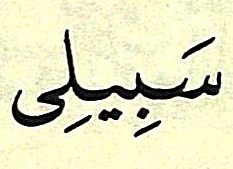 سَبِيلِى